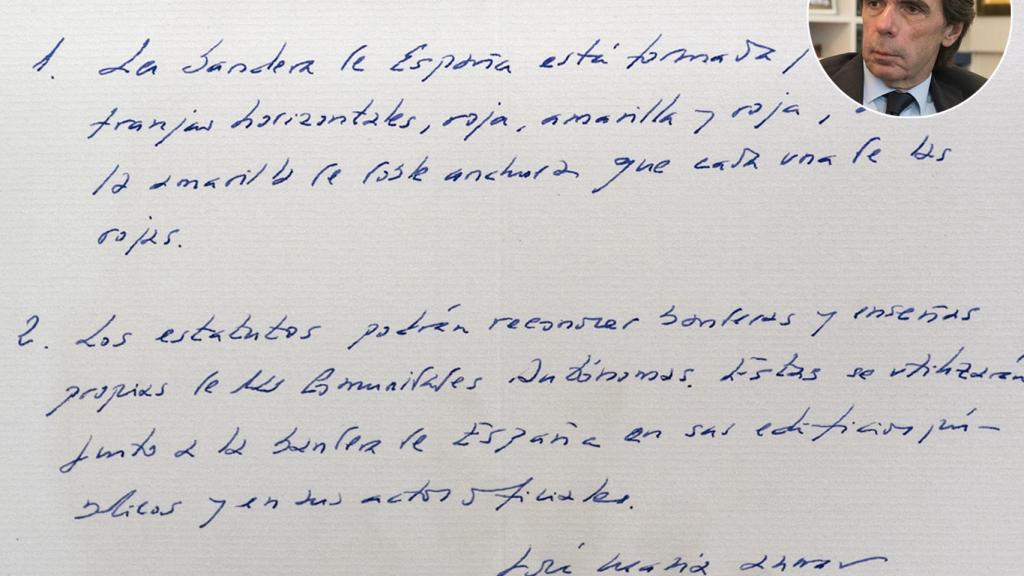 1. La bandera de España está formada p
franjas horizontales, roja, amarilla y roja,
la amarilla de doble anchura que cada una de las
rojas.
2. Los estatutos podrán reconocer banderas y enseñas
propias de las Comunidades Autónomas. Estas se utilizarán
junto a la bandera de España en sus edificios pú-
blicos y en sus actos oficiales.
José María Aznar